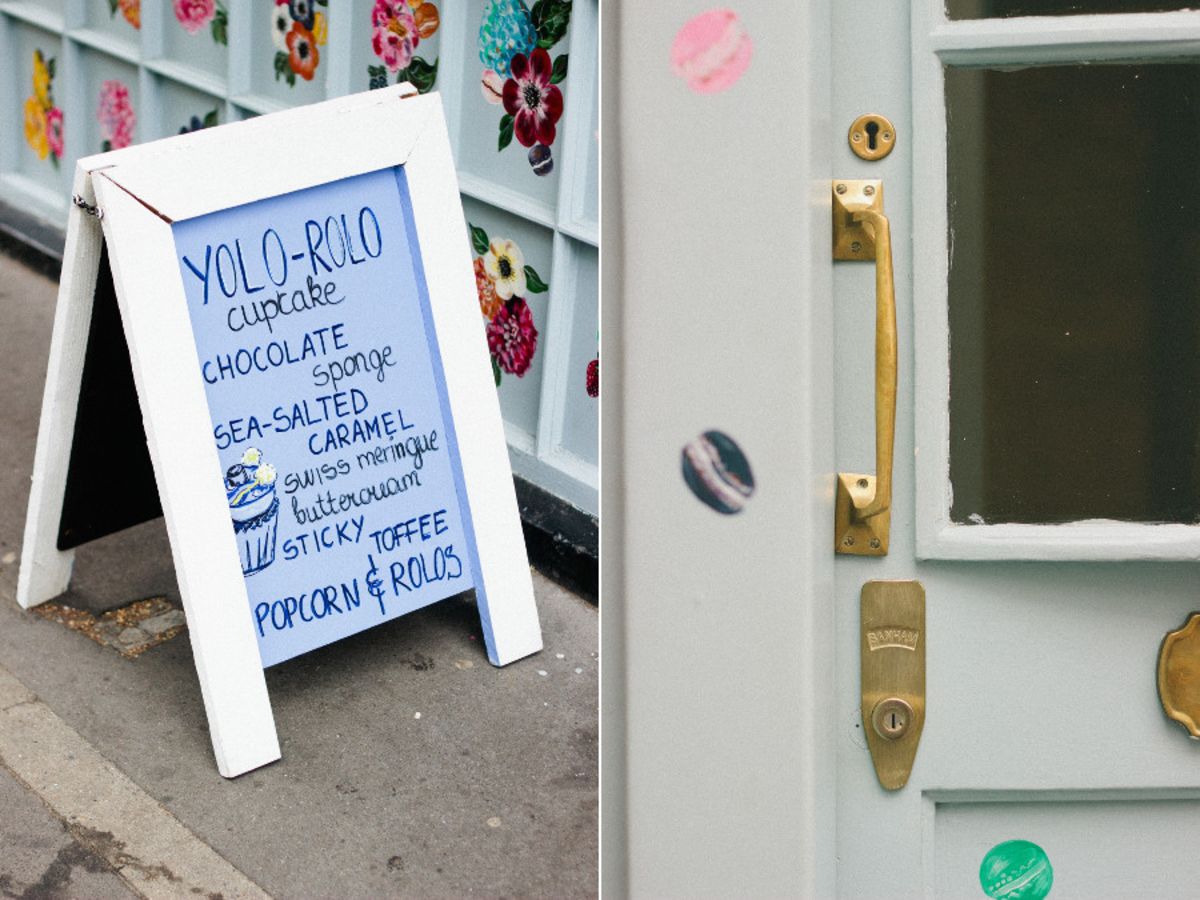 YOLO-ROLO
cupcake
CHOCOLATE
sponge
SEA-SALTED
CARAMEL
swiss meringue
buttercream
STICKY TOFFEE
POPCORN & ROLOS
BANHAM